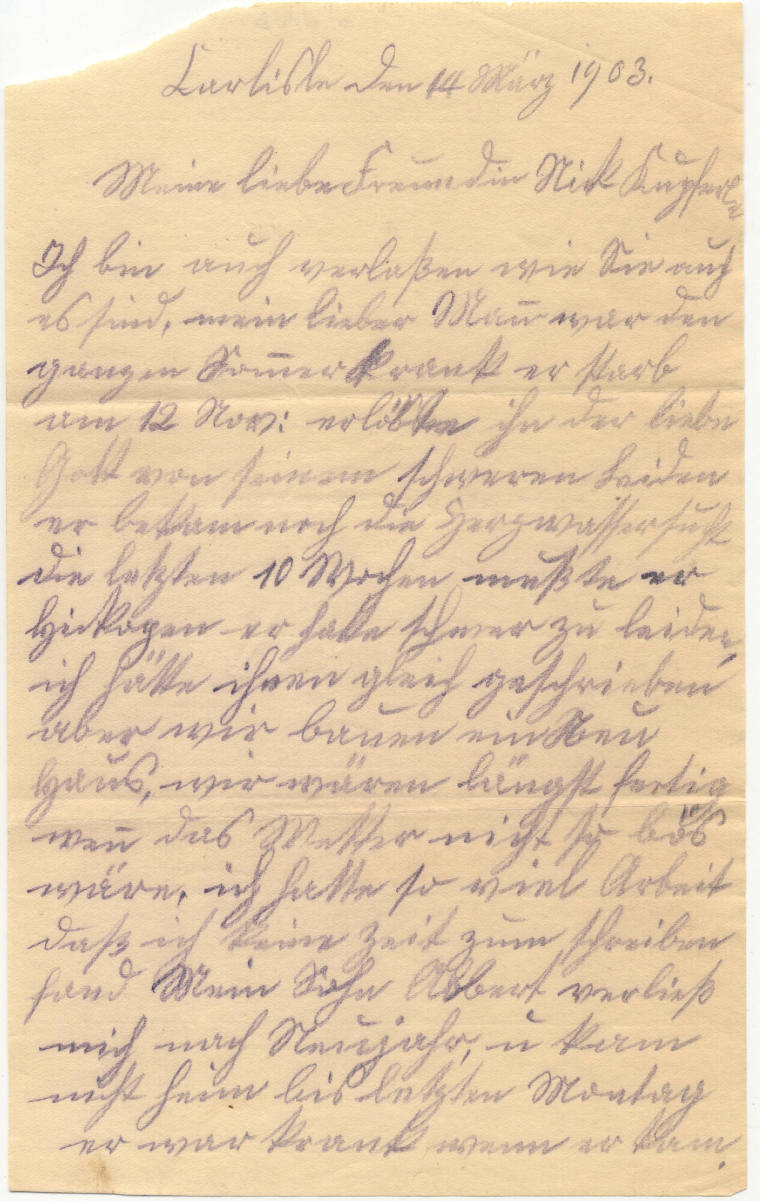 Carlisle den 14 März 1903.
Meine liebe Freundin Nick Kupferle
Ich bin auch verlaßen wie Sie auch
es sind, mein lieber Man̅ war den
ganzen Som̅er krank er starb
am 12 Nov: erlößte ihn der liebe
Gott von seinem schweren Leiden
er bekam noch die Herzwassersucht
die letzten 10 Wochen mußte er
er hatte schwer zu leiden,
ich hätte ihnen gleich geschrieben
aber wir bauen ein Neu
Haus, wir wären längst fertig
wen̅ das Wetter nicht so bös
wäre, ich hatte so viel Arbeit
daß ich keine Zeit zum schreiben
fand Mein Sohn Albert verließ
mich nach Neujahr, u kam
nicht heim bis letzten Montag
er war krank wenn er kam.